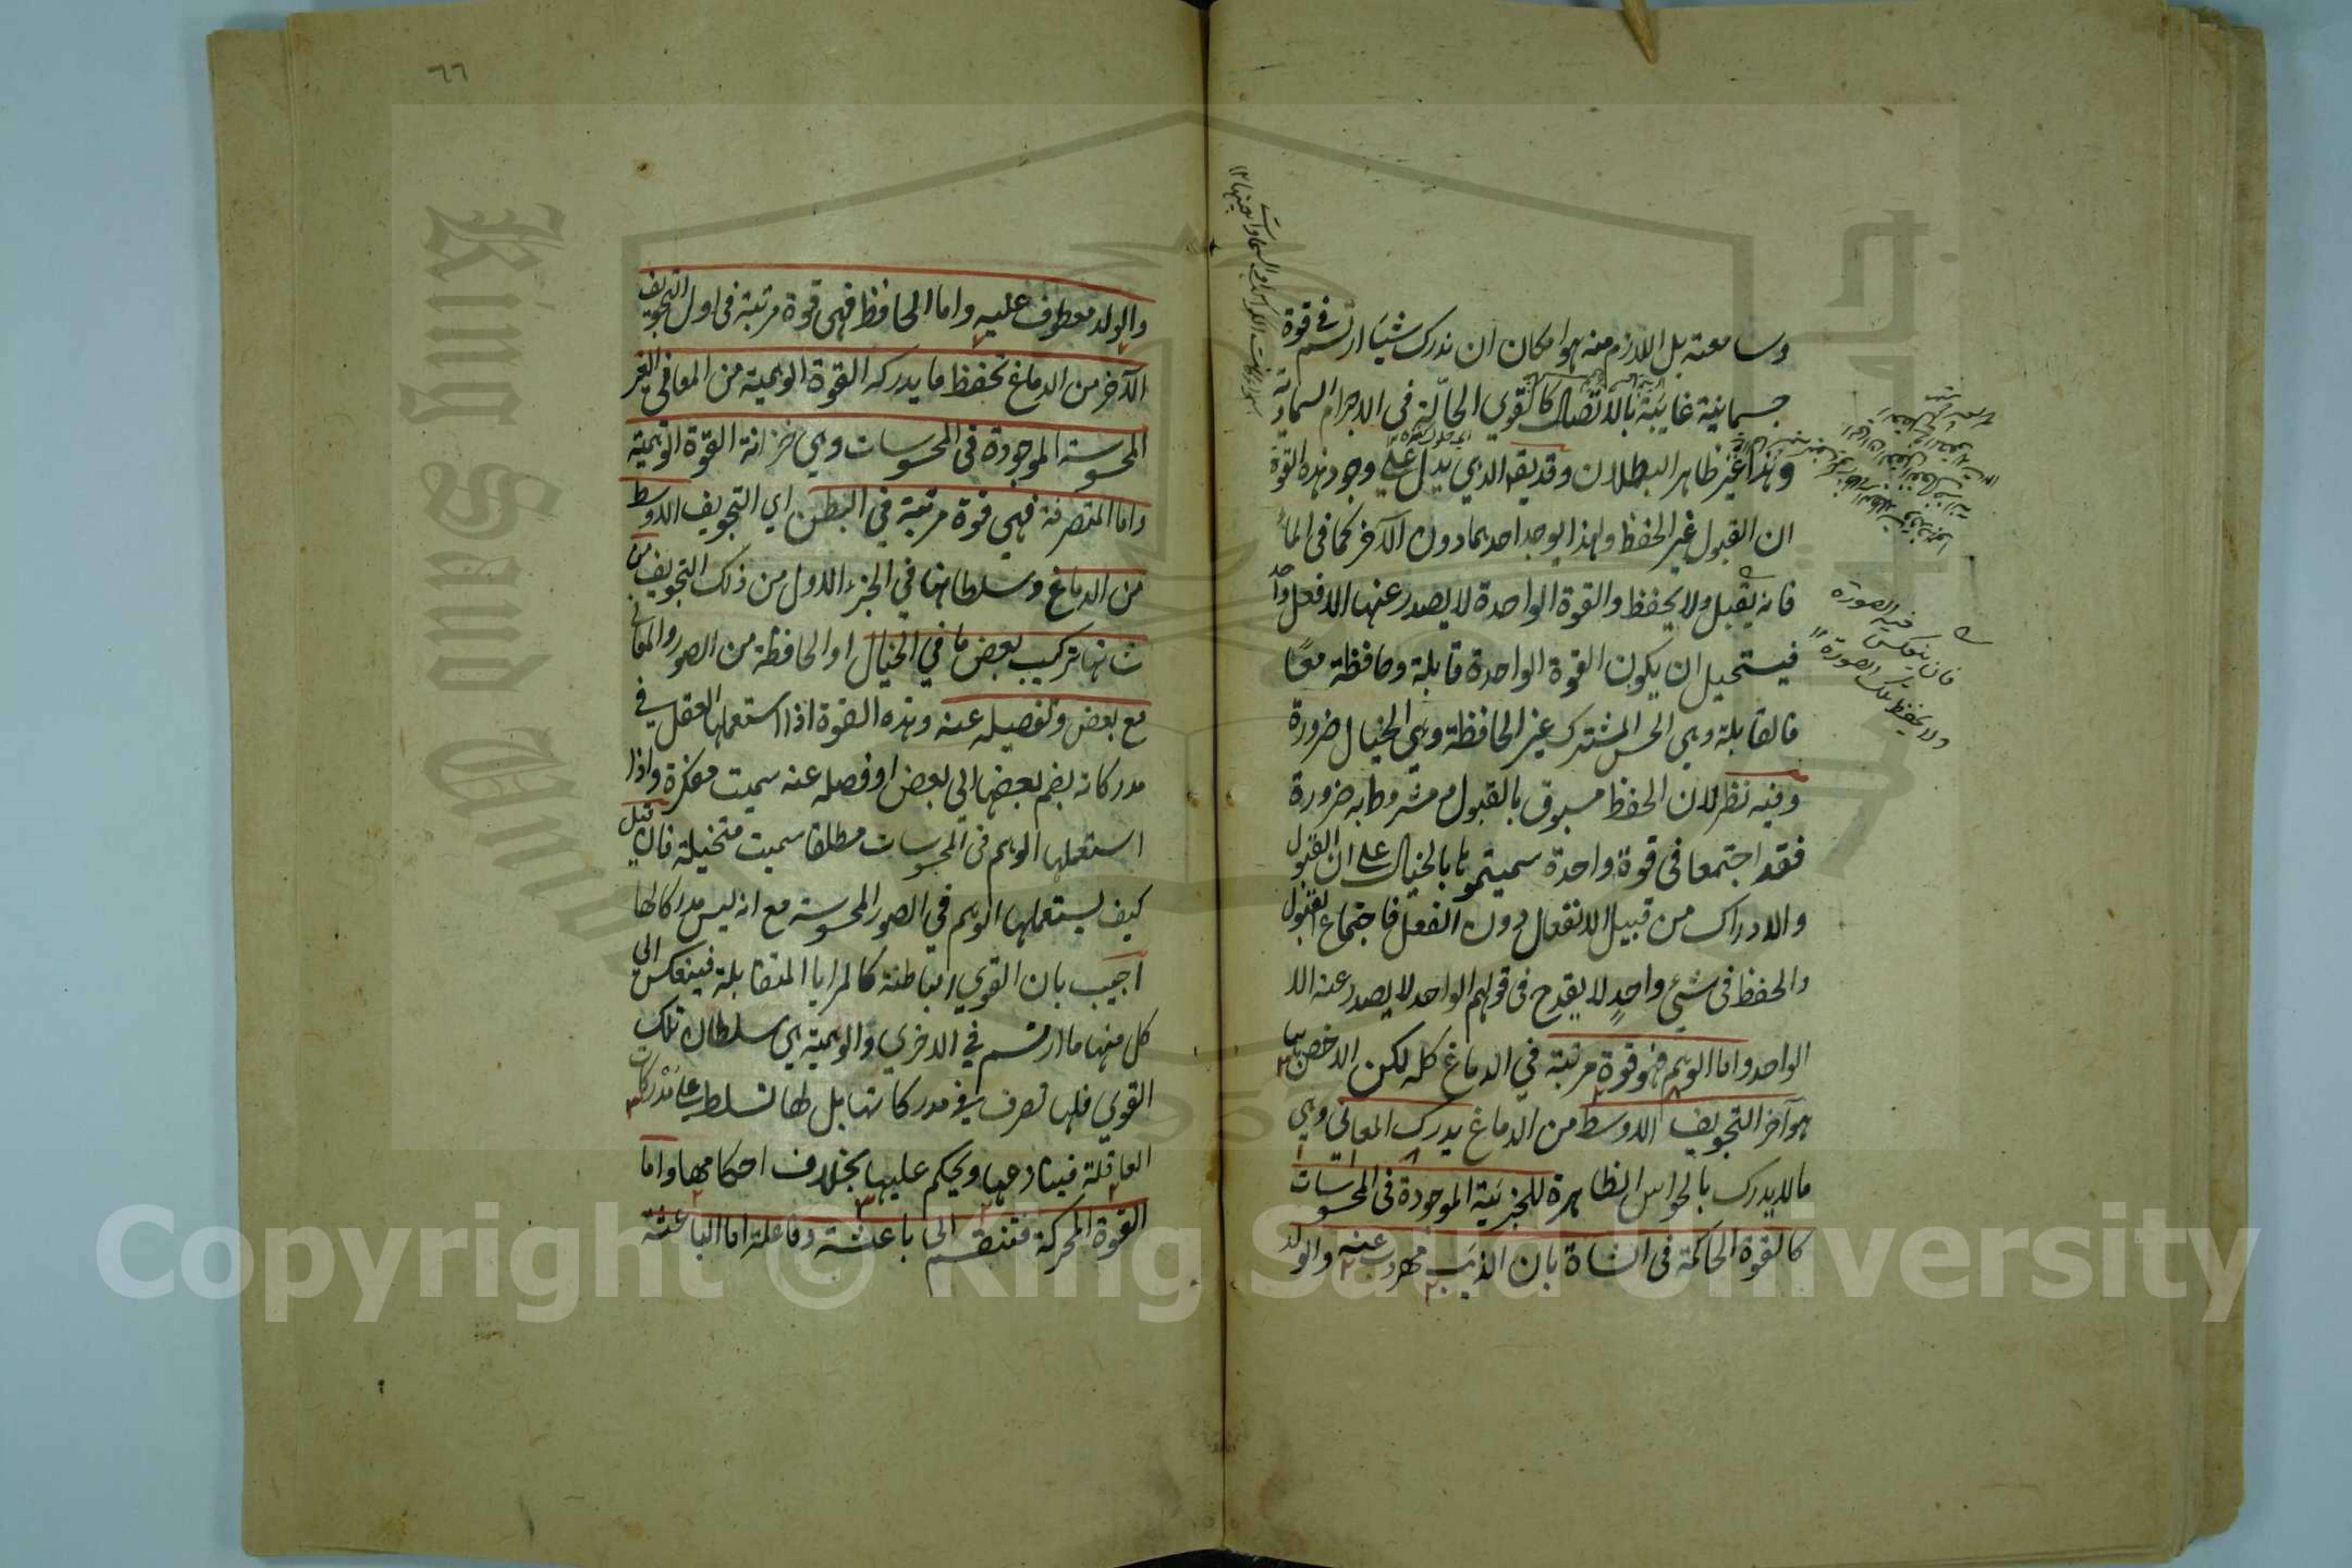 وسامعته بل اللازم منه هو امكان ان ندرك شيئا ارتسم في قوة
جسمانية غائبة بالاتصال كالقوي الحالّة في الاجرام السماوية
وهذا غير ظاهر البطلان وقد يقال الذي يدل على وجود هذه القوة
ان القبول غير الحفظ ولهذا يوجد احدهما دون الآخر كما في الماء
فانه يقبل ولا يحفظ والقوة الواحدة لا يصدر عنها الا فعل واحد
فيستحيل ان يكون القوة الواحدة قابلة وحافظة معًا
فالقابلة وهي الحس المشترك غير الحافظة وهي الخيال ضرورة
وفيه نظر لان الحفظ مسبوق بالقبول ومشروط به ضرورة
فقد اجتمعا في قوة واحدة سميتموها بالخيال على ان القبول
والادراك من قبيل الانفعال دون الفعل فاجتماع القبول
والحفظ في شئ واحدٍ لا يقدح في قولهم الواحد لا يصدر عنه الا
الواحد واما الوهم فهو قوة مرتبة في الدماغ كله لكن الاخص بها
هو آخر التجويف الاوسط من الدماغ يدرك المعاني وهي
ما لا يدرك بالحواس الظاهرة للجزئية الموجودة في المحسوسات
كالقوة الحاكمة في الشاة بان الذئب مهروب عنه والولد
فان ينعكس فيه الصورة
ولا يحفظ تلك الصورة
٦٦
والولد معطوف عليه واما الحافظ فهي قوة مرتبة في اول التجويف
الآخر من الدماغ تحفظ ما يدركه القوة الوهمية من المعاني الغير
المحسوسة الموجودة في المحسوسات وهي خزانة القوة الوهمية
واما المتصرفة فهي قوة مرتبة في البطن اي التجويف الاوسط
من الدماغ وسلطانها في الجزء الاول من ذلك التجويف من
شانها تركيب بعض ما في الخيال او الحافظة من الصور والمعاني
مع بعض وتفصيله عنه وهذه القوة اذا استعملها العقل في
مدركاته بضم بعضها الى بعض او فصله عنه سميت مفكرة واذا
استعملها الوهم في المحسوسات مطلقا سميت متخيلة فان قيل
كيف يستعملها الوهم في الصور المحسوسة مع انه ليس مدركا لها
اجيب بان القوي الباطنة كالمرايا المتقابلة فينعكس الى
كل منها ما ارتسم في الاخري والوهمية هي سلطان تلك
القوي فلها تصرف في مدركاتها بل لها تسلط على مدركات
العاقلة فينازعها ويحكم عليها بخلاف احكامها واما
القوة المحركة فتنقسم الى باعثة وفاعلة اما الباعثة
King Saud University
Copyright © King Saud University